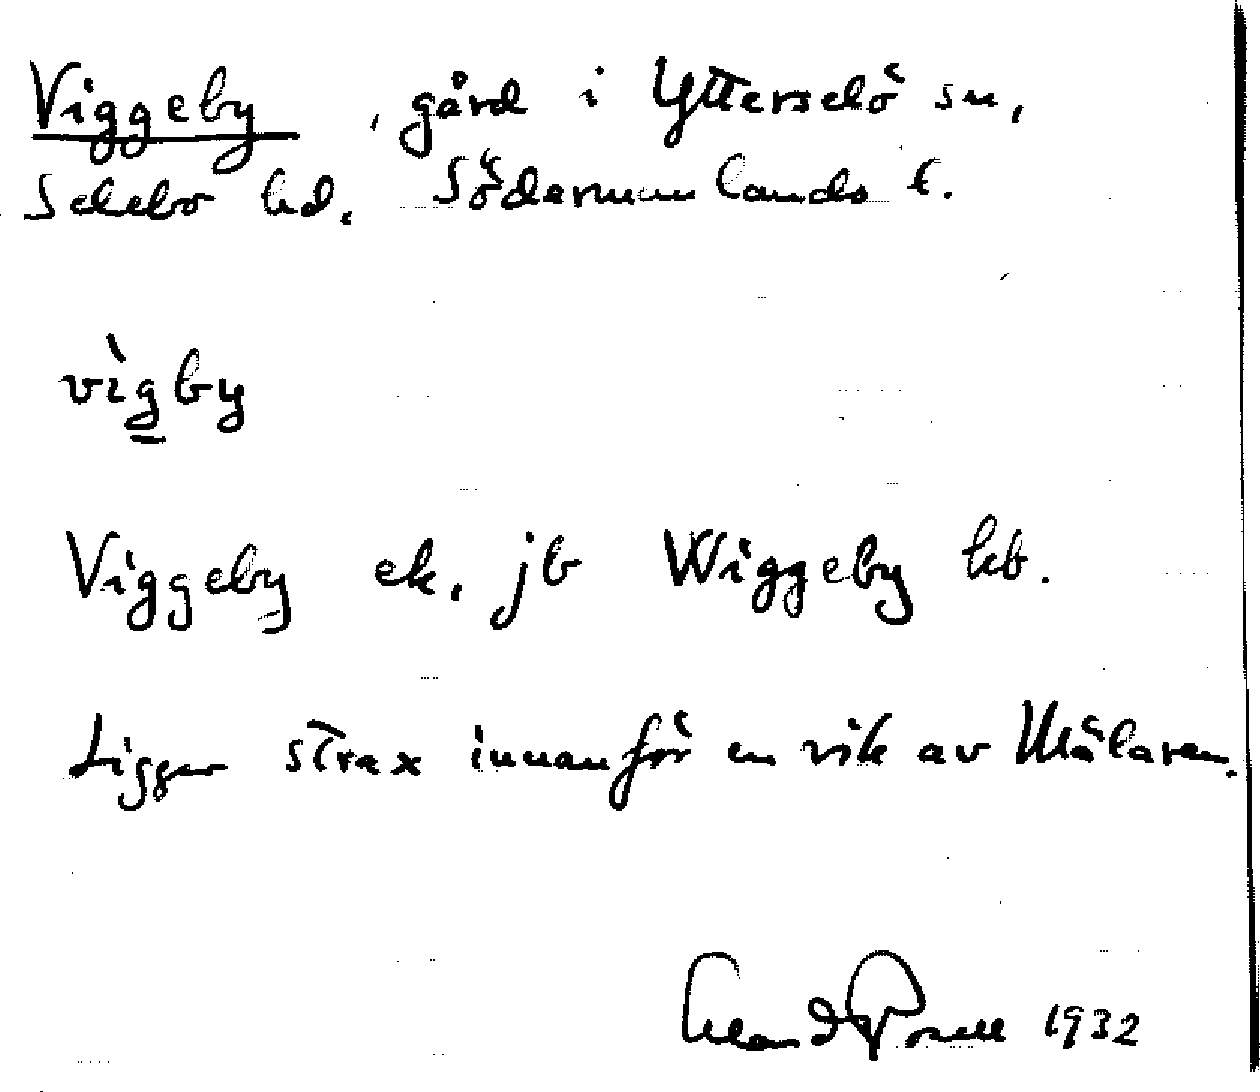 Viggeby, gård i Ytterselö sn,
Selebo hd. Södermanlands l.
vìgby
Viggeby ek, jb Wiggeby kb.
Ligger strax innanför en vik av Mälaren.
1932